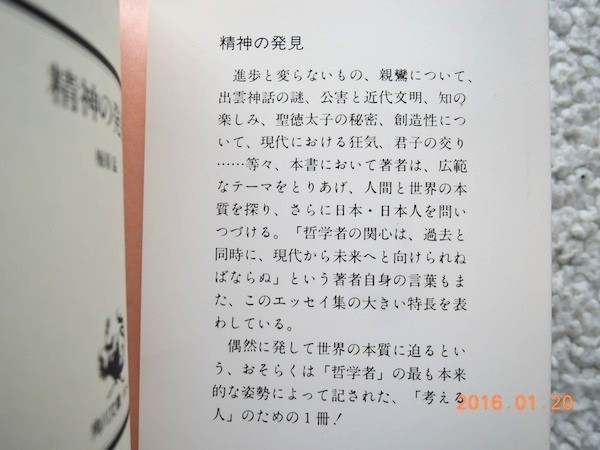 精神の発
精神の発見
進歩と変らないもの、親鸞について、
出雲神話の謎、公害と近代文明、知の
楽しみ、聖徳太子の秘密、創造性につ
いて、現代における狂気、君子の交り
……等々、本書において著者は、広範
なテーマをとりあげ、人間と世界の本
質を探り、さらに日本・日本人を問い
つづける。「哲学者の関心は、過去と
同時に、現代から未来へと向けられね
ばならぬ」という著者自身の言葉もま
た、このエッセイ集の大きい特長を表
わしている。
偶然に発して世界の本質に迫るとい
う、おそらくは「哲学者」の最も本来
的な姿勢によって記された、「考える
人」のための1冊!
2016.01.20